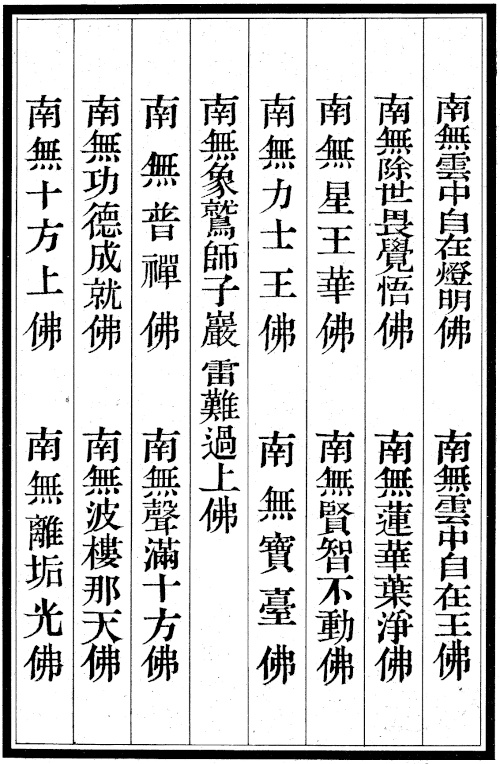 南無雲中自在燈明佛　南無雲中自在王佛
南無除世畏覺悟佛　南無蓮華葉淨佛
南無星王華佛　南無賢智不動佛
南無力士王佛　南無寶臺佛
南無象鷲師子巖雷難過上佛
南無普禪佛　南無聲滿十方佛
南無功德成就佛　南無波樓那天佛
南無十方上佛　南無離垢光佛